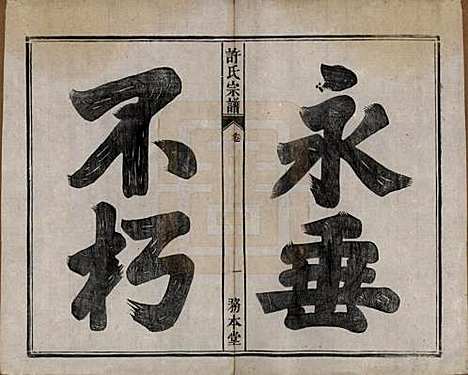 永垂
不朽
許氏宗譜
卷
一
務本堂